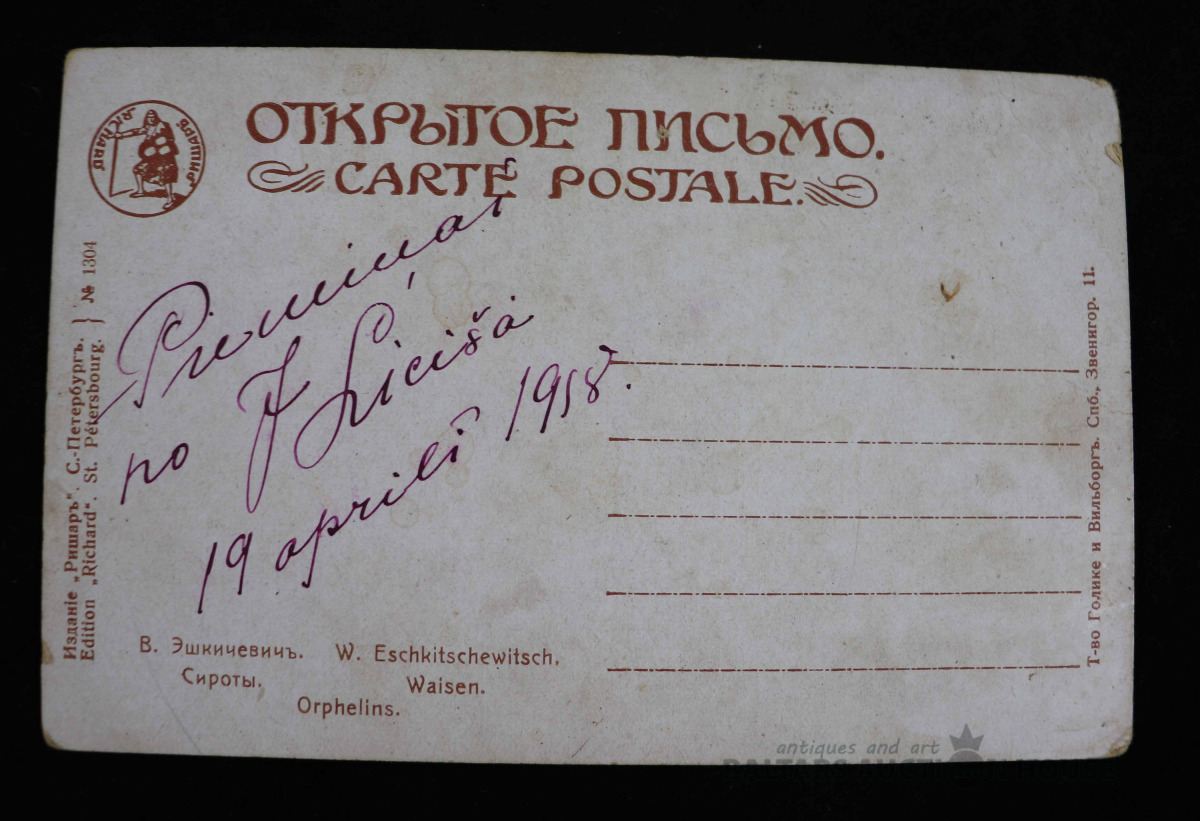 RICHARD РИШАРЪ
ОТКРЫТОЕ ПИСЬМО.
CARTE POSTALE.
Издание „Ришаръ“. С.-Петербургъ.
Edition „Richard“. St. Pétersbourg.
} № 1304
Piemiņai
no J Līcīša
19 aprilī 1918.
В. Эшкичевичъ. W. Eschkitschewitsch.
Сироты. Waisen.
Orphelins.
Т-во Голике и Вильборгъ. Спб., Звенигор. 11.
antiques and art